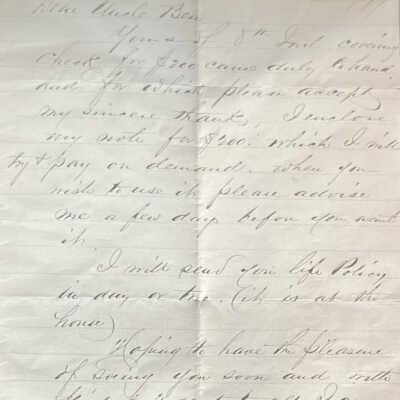 Dear Uncle Ben
Yours of 8th Inst covering
Check for $200 came duly to hand
and for which please accept
my sincere thanks, I enclose
my note for $200. which I will
try & pay on demand. When you
wish to use it please advise
me a few days before you want
it.
I will send you life Policy
in day or two. (it is at the
house)
Hoping to have the pleasure
of seeing you soon and with